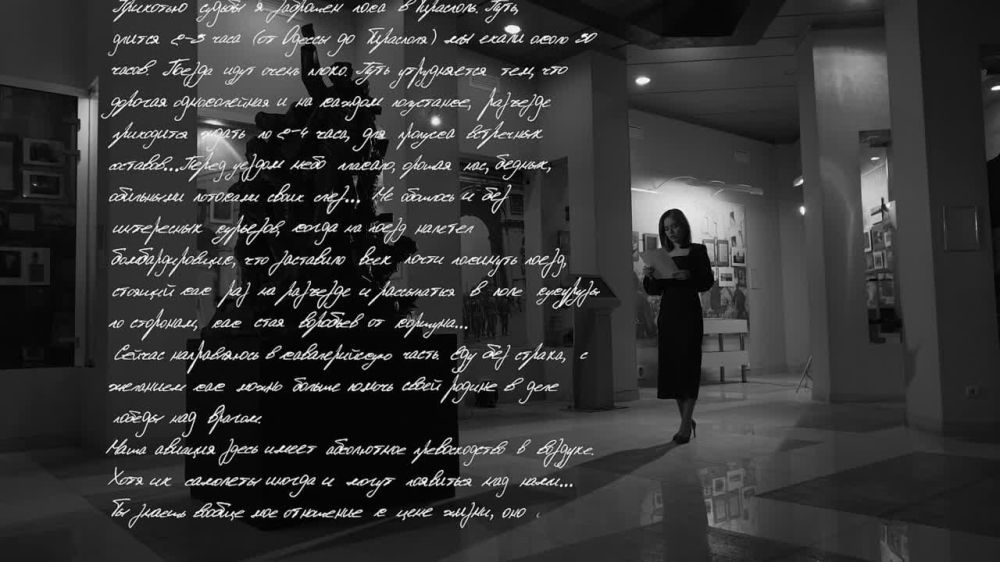 Прихотью судьбы я заброшен пока в Тирасполь. Путь,
длится 2-3 часа (от Одессы до Тирасполя) мы ехали около 30
часов. Поезда идут очень плохо. Путь утрудняется тем, что
дорогая одноколейная и на каждом полустанке, разъезде
приходится ждать по 2-4 часа, для пропуска встречных
составов... Перед уездом небо плакало, орошая нас, бедных,
обильными потоками своих слез... Не обошлось и без
интересных курьезов, когда на поезд налетел
бомбардировщие, что заставило всех почти покинуть поезд,
стоящий как раз на разъезде и рассыпаться в поле кукурузы
по сторонам, как стая воробьев от коршуна...
Сейчас направляюсь в кавалерийскую часть. Еду без страха, с
желанием как можно больше помочь своей родине в деле
победы над врагом.
Наша авиация здесь имеет абсолютное превосходство в воздухе.
Хотя их самолеты иногда и могут появиться над нами...
Ты знаешь вообще мое отношение к цене жизни, оно